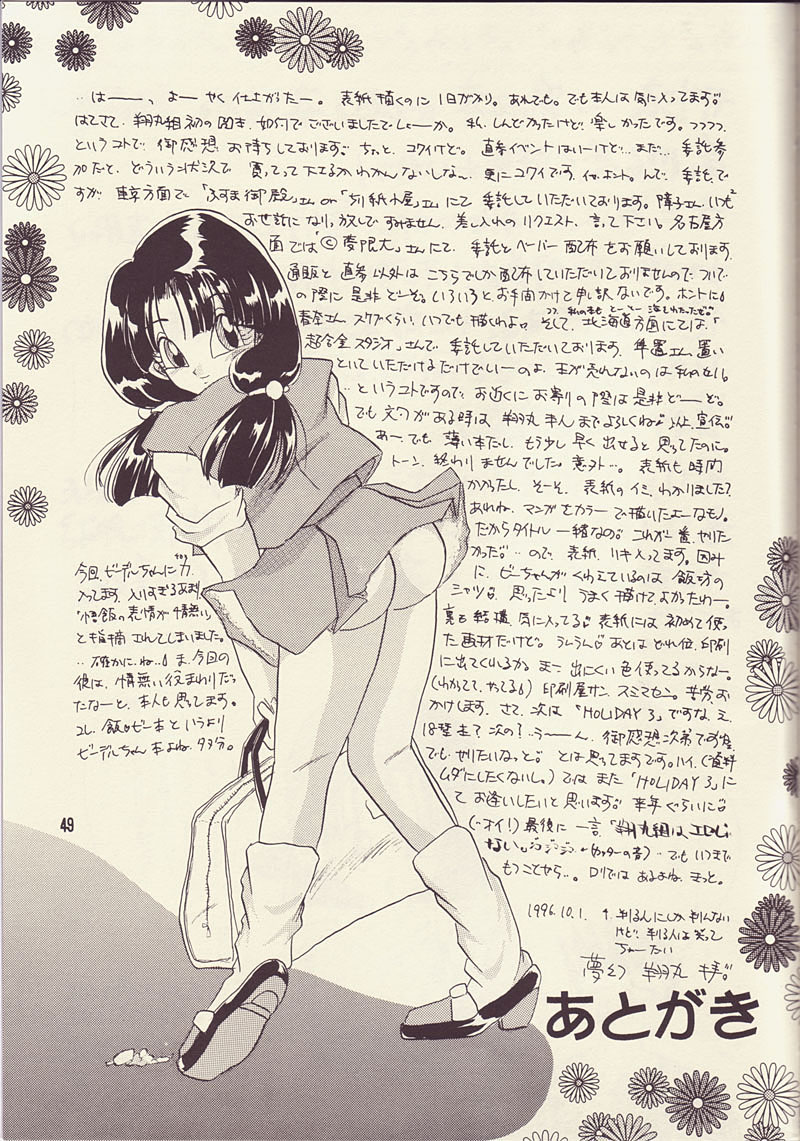 ‥は――っ よ―やく仕上がった―。表紙描くのに1日がかり。あれでも。でも本人は気に入ってます。
はてさて、翔丸組初の 如何でございましたでしょーか。私、しんどかったけど、楽しかったです。フフフフ
というコトで御感想お待ちしております。ちょっと、コワイけど。直参イベントはいーけど…まだ…委託参
加だと、どういう状況で買って下さるかわかんないしな〜、更にコワイです。イヤ、ホント。んで、委託で
すが東京方面で「ふすま御殿」さん or「切り紙小屋」さんにて委託していただいております。障子さん、いつも
お世話になりっ放しですみません、差し入れのリクエスト、言って下さい。名古屋方
面では「©夢限大」さんにて、委託とペーパー配布をお願いしております。
通販と直参以外はこちらでしか配布していただいておりませんので、ついで
の際に是非どーぞ。いろいろとお手間かけて申し訳ないです。ホントに。
春奈さん、スケブくらい、いつでも描くわよ。そして、北海道方面にては、「
超合金スタジオ」さんで委託していただいております。 置い
といていただけるだけでいーのよ、本が売れないのは私のせい。
‥というコトですので、お近くにお寄りの際は是非ど―ぞ。
でも文句がある時は、翔丸 までよろしくね。 宣伝。
あー、でも薄い本だし、もう少し早く出せると思ってたのに。
トーン、終わりませんでした。意外…。表紙も時間
かかったし、そーそ、表紙のイミ、わかりました?
あれね、マンガをカラーで描いたよーなモノ。
だからタイトル一緒なの。これが一番、やりた
かった。‥ので、表紙、リキ入ってます。因み
に、ビーちゃんがくわえているのは飯坊の
シャツ。思ったよりうまく描けてよかったわー。
裏も結構、気に入ってる。表紙には初めて使っ
た画材だけど。うふうふ。あとはどれ位、印刷
に出てくれるか。ま―出にくい色使ってるからなー。
(わかってて、やってる)印刷屋サン、スミマセン。苦労お
かけします。さて、次は「HOLIDAY 3」ですな、え、
18禁本?次の?う―ん、御感想次第ですな。
でも、やりたいなっと。とは思ってますです。ハイ、(資料
ムダにしたくないし。)では、また「HOLIDAY 3」に
てお逢いしたいと思います。来年ぐらいに。
(‥オイ!)最後に一言、「翔丸組はエロじゃ
ない。」ジジジジー(カッターの音)‥でもいつまで
もつことやら‥。ロリではあるよね、きっと。
1996.10.1. 判る人にしか判んない
けど、判る人は笑って
ちょーだい
夢幻 翔丸
今回、ビーデルちゃんに力
入ってます。入りすぎるあまり
「悟飯の表情が情無い」
と指摘されてしまいました。
‥確かに、ね。ま、今回の
彼は、情無い役まわりだっ
たなーと、本人も思ってます。
コレ、飯×ビー本というより
ビーデルちゃん本よね、タブン。
49
あとがき